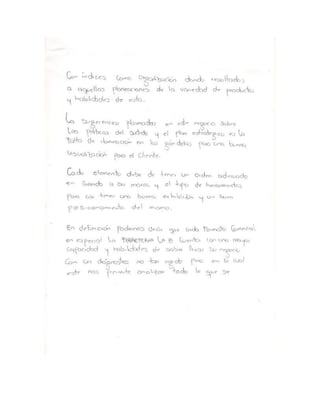 Con indices como Organización dando resultados
a aquellas planeaciones de la variedad de productos
y habilidades de esta.
Las sugerencias planeadas en este negocio sobre
las políticas del surtido y el plan estratégico es la
falta de iluminación en las góndolas para una buena
visualización para el cliente.
Cada elemento debe de tener un orden adecuado
en cuando a su marca y el tipo de herramientas
para así tener una buena exhibición y un buen
posicionamiento del mismo.
En definición podemos decir que cada formato comercial
en especial La FERRETERIA La B cuenta con una mayor
capacidad y habilidades de saber llevar su negocio
Con un diagnostico no tan agudo pero en el cual
este nos permite analizar todo lo que se